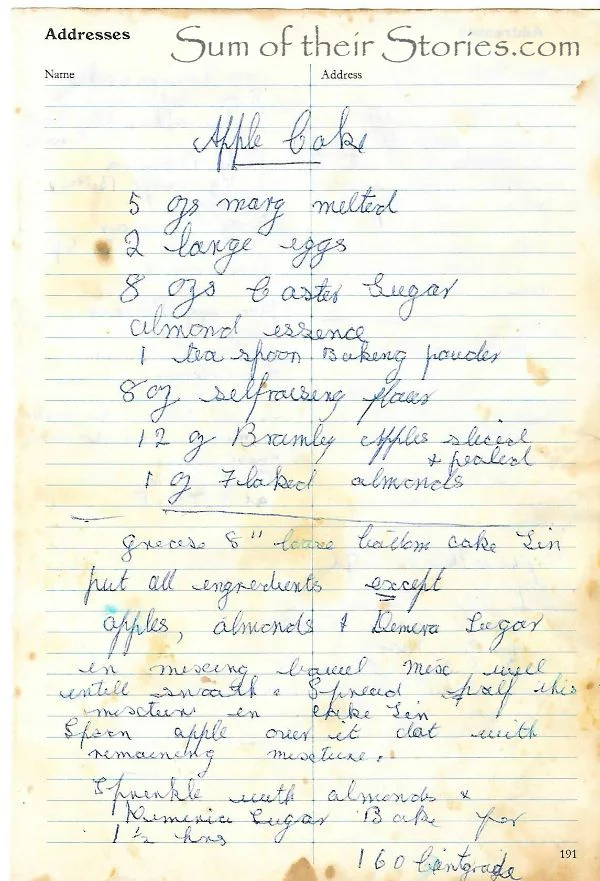 Addresses
Sum of their Stories.com
Name Address
Apple Cake
5 ozs marg melted
2 large eggs
8 ozs Caster Sugar
almond essence
1 tea spoon Baking powder
8 oz selfraising flour
12 oz Bramley apples sliced
& pealed
1 oz Flaked almonds
grease 8" loose bottom cake Tin
put all engredients except
apples, almonds & Demera Sugar
in mixing bowl mix well
untill smooth. Spread half this
mixture in cake Tin
Spoon apple over it dot with
remaining mixture.
Sprinkle with almonds &
Demeria Sugar Bake for
1 ½ hrs
160 Centgrade
191